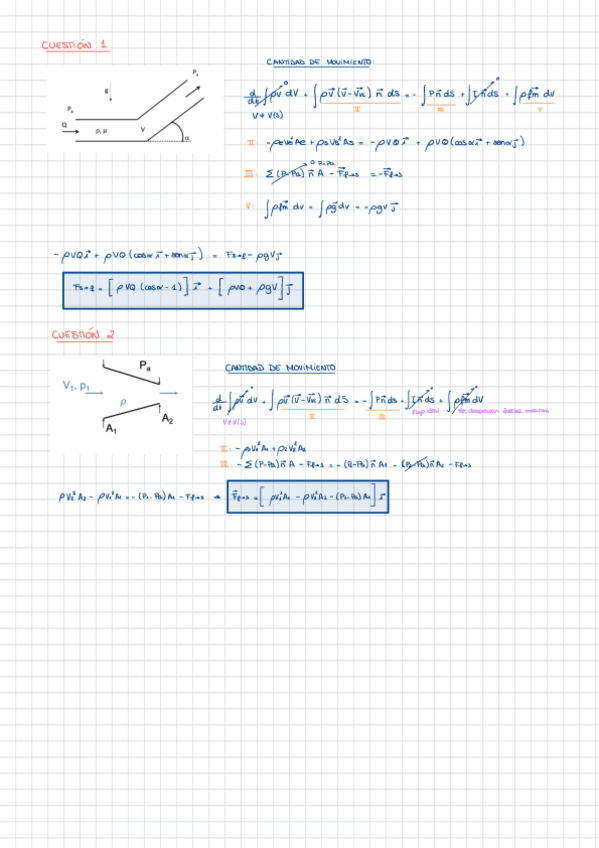 CUESTIÓN 1
CANTIDAD DE MOVIMIENTO:
g
Pa
Pa
Q
ρ, μ
V
α
d/dt ∫ρv⃗ dV + ∫ρv⃗ (v⃗ - v⃗c) n⃗ ds = - ∫Pn⃗ ds + ∫τ n⃗ ds + ∫ρf⃗m dv
0
0
II
III
V
V ≠ V(t)
II: -ρeVe²Ae + ρsVs²As = -ρVQ i⃗ + ρVQ (cosα i⃗ + senα j⃗)
III: Σ (P-Pa) n⃗ A - Ff→s = -Ff→s
0 P=Pa
V: ∫ρf⃗m dv = ∫ρg⃗ dv = -ρgV j⃗
-ρVQ i⃗ + ρVQ (cosα i⃗ + senα j⃗) = Fs→f - ρgV j⃗
Fs→f = [ρVQ (cosα - 1)] i⃗ + [ρVQ + ρgV] j⃗
CUESTIÓN 2
Pa
V1, P1
ρ
A1
A2
CANTIDAD DE MOVIMIENTO
d/dt ∫ρv⃗ dV + ∫ρv⃗ (v⃗ - v⃗c) n⃗ dS = - ∫Pn⃗ ds + ∫τ n⃗ ds + ∫ρf⃗m dV
II
III
V ≠ V(t)
flujo ideal
se desprecian fuerzas másicas
II: -ρV1²A1 + ρV2²A2
III: -Σ (P-Pa) n⃗ A - Ff→s = -(P1-Pa) n⃗ A1 - (P2-Pa) n⃗ A2 - Ff→s
ρV2²A2 - ρV1²A1 = -(P1-Pa) A1 - Ff→s →
F⃗f→s = [ρV1²A1 - ρV2²A2 - (P1-Pa) A1] i⃗